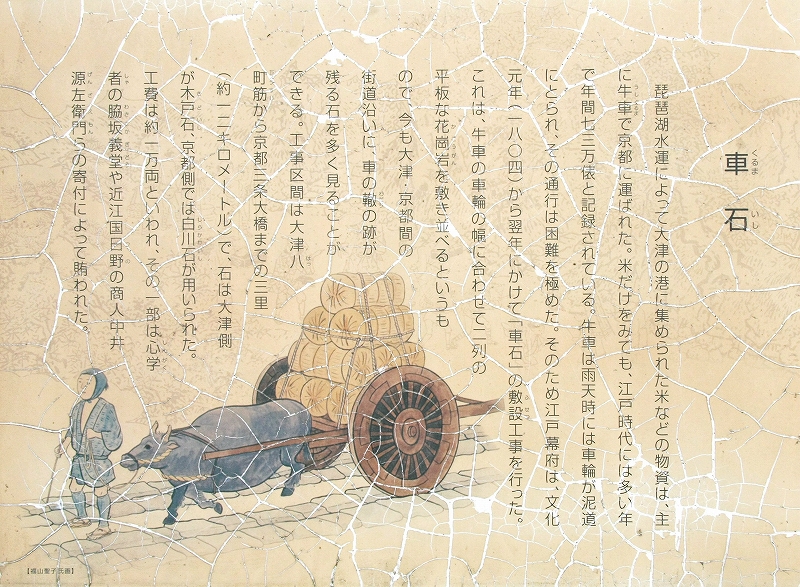 車石
琵琶湖水運によって大津の港に集められた米などの物資は、主
に牛車で京都に運ばれた。米だけをみても、江戸時代には多い年
で年間七三万俵と記録されている。牛車は雨天時には車輪が泥道
にとられ、その通行は困難を極めた。そのため江戸幕府は、文化
元年(一八〇四)から翌年にかけて「車石」の敷設工事を行った。
これは、牛車の車輪の幅に合わせて二列の
平板な花崗岩を敷き並べるというも
ので、今も大津・京都間の
街道沿いに、車の轍の跡が
残る石を多く見ることが
できる。工事区間は大津八
町筋から京都三条大橋までの三里
(約一二キロメートル)で、石は大津側
が木戸石、京都側では白川石が用いられた。
工費は約一万両といわれ、その一部は心学
者の脇坂義堂や近江国日野の商人中井
源左衛門らの寄付によって賄われた。